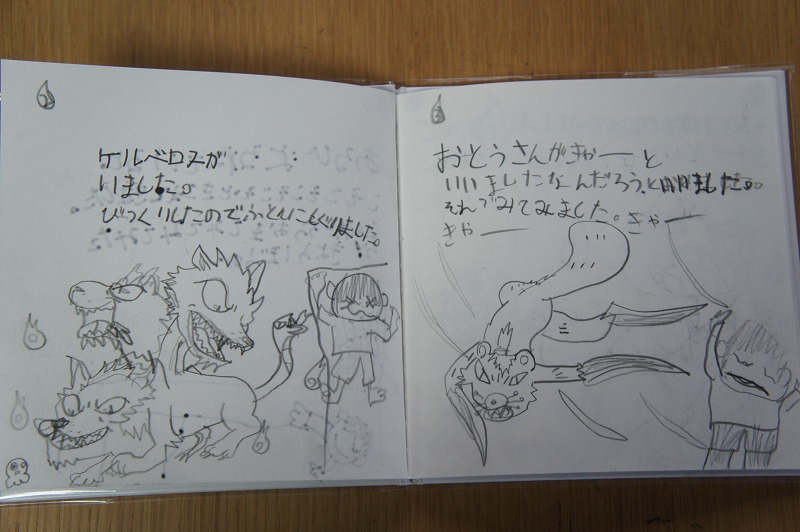 ケルベロスが
いました。
びっくりしたのでふとんにもぐりました。
おとうさんがきゃーと
いいましたなんだろう、と ました。
それでみてみました。きゃー
きゃー